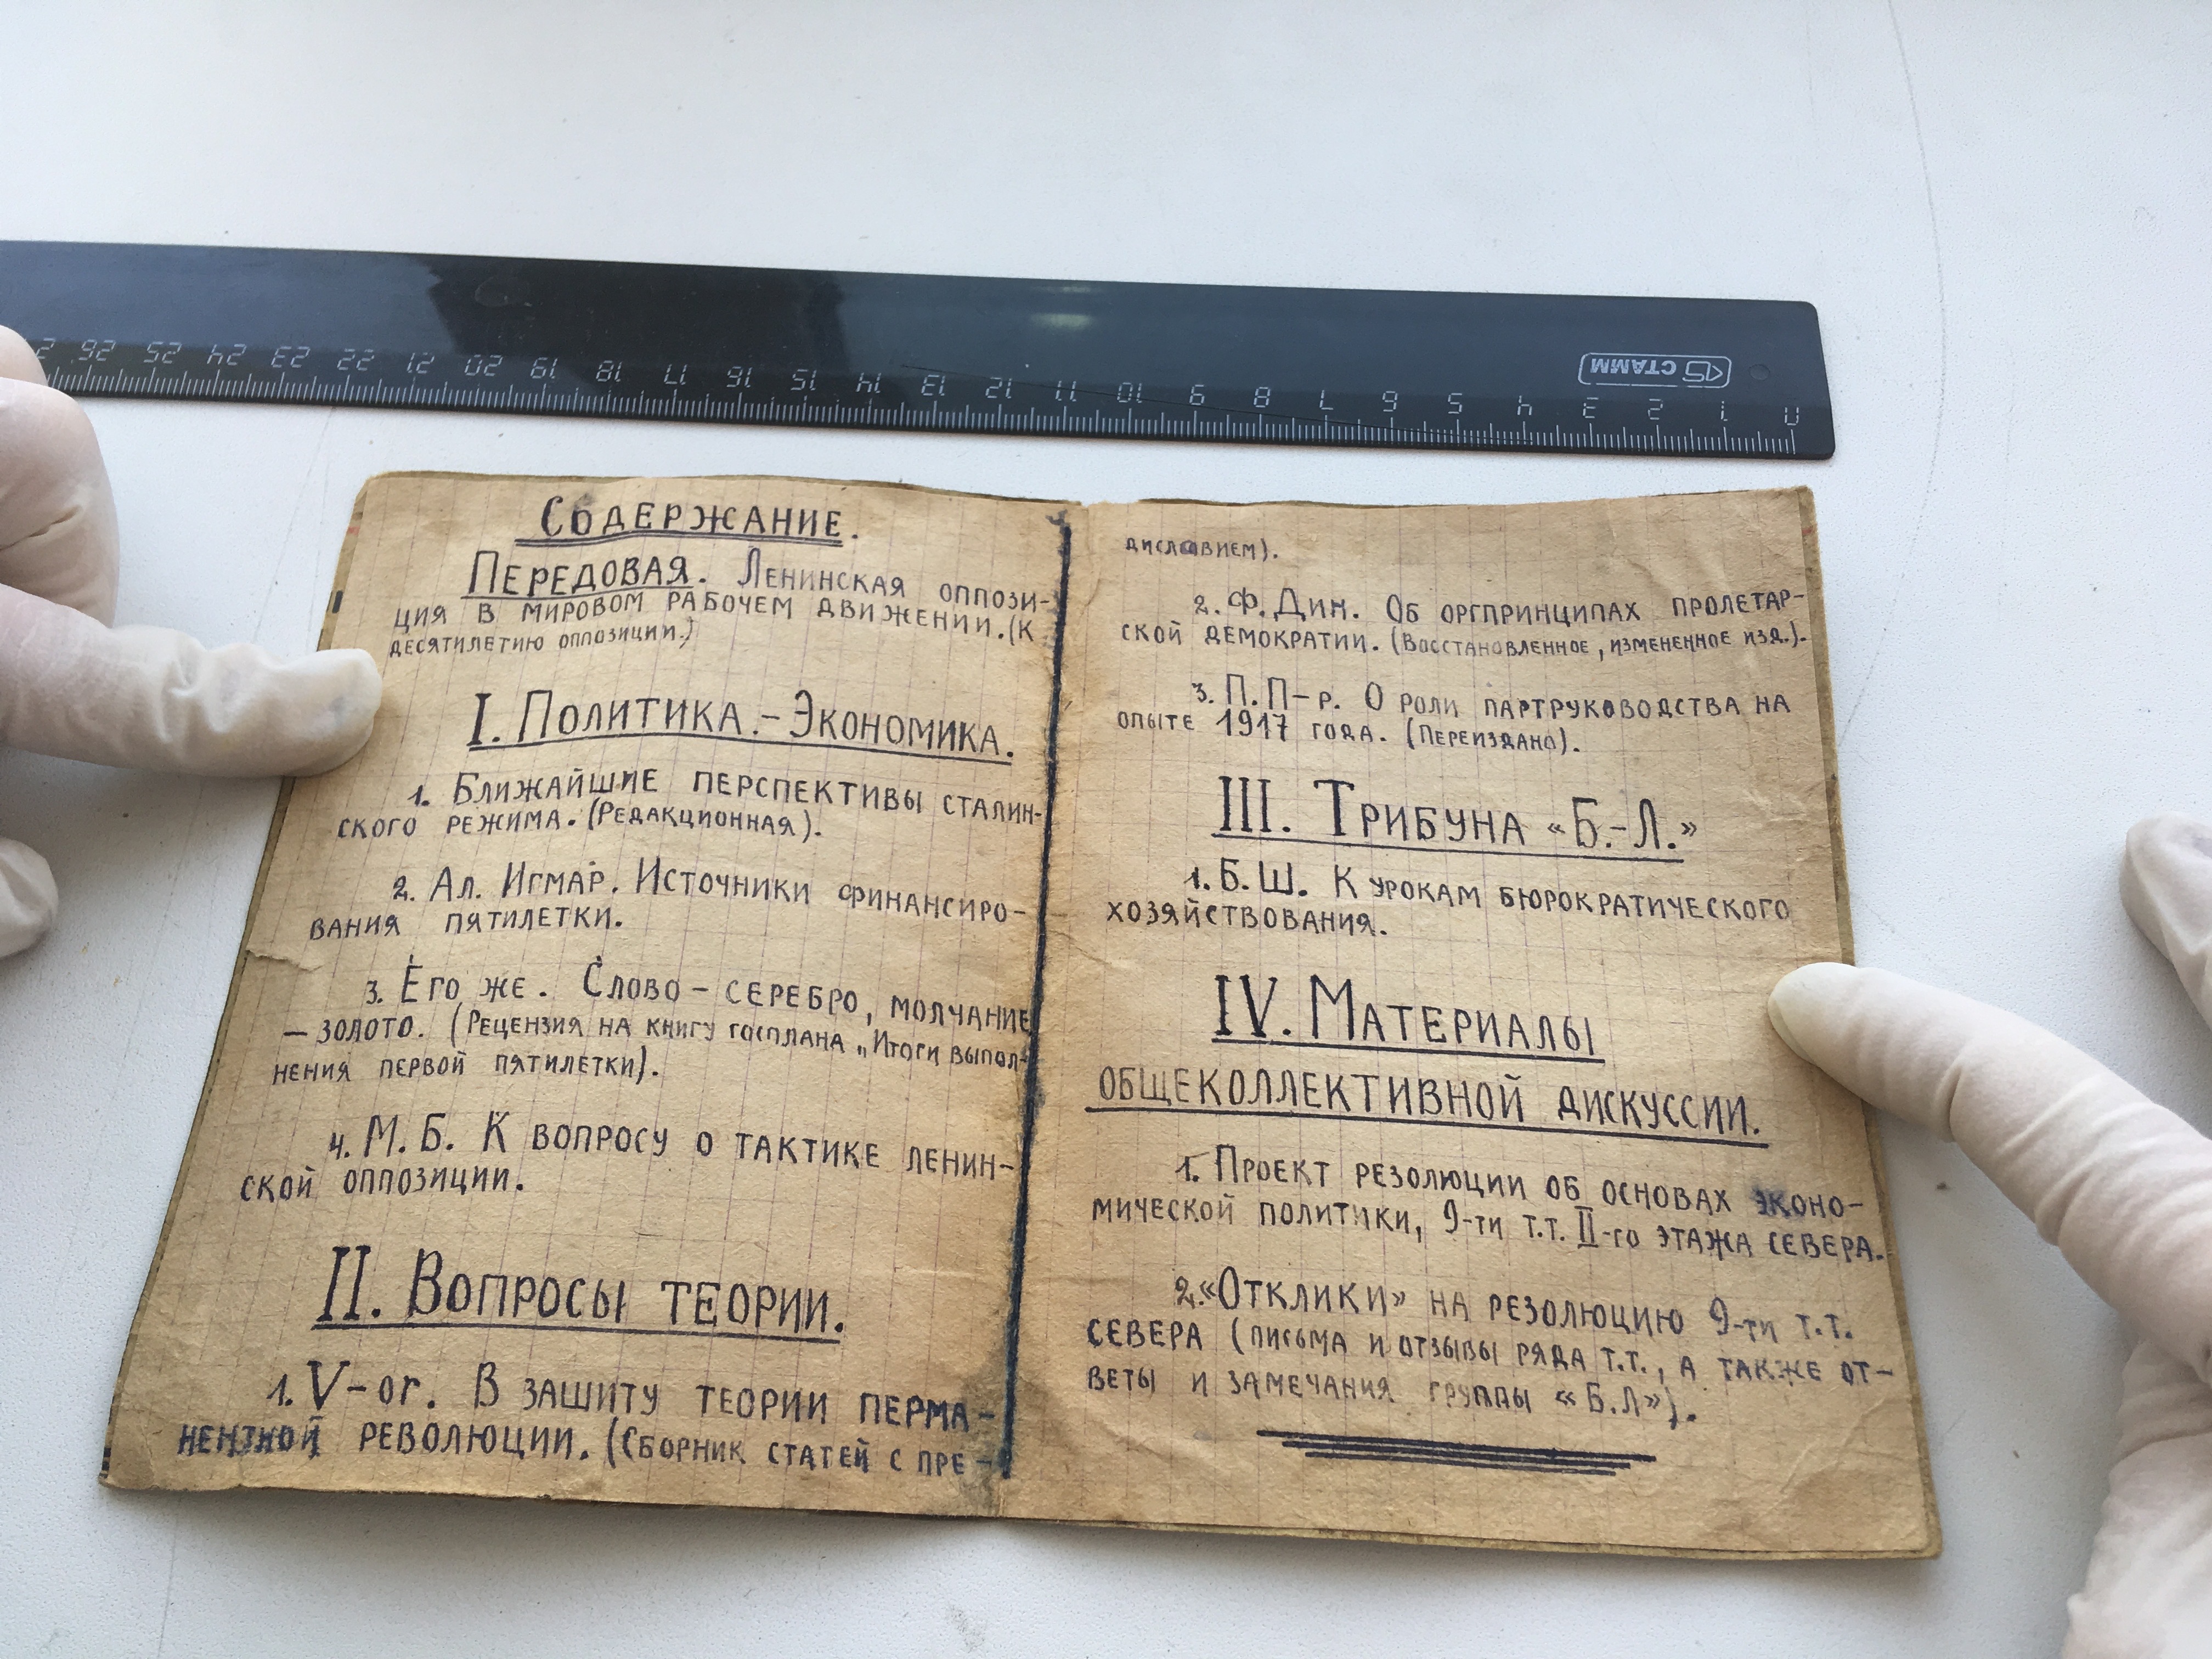 СТАММ
0 1 2 3 4 5 6 7 8 9 10 11 12 13 14 15 16 17 18 19 20 21 22 23 24 25 26
СОДЕРЖАНИЕ.
ПЕРЕДОВАЯ. ЛЕНИНСКАЯ ОППОЗИ-
ЦИЯ В МИРОВОМ РАБОЧЕМ ДВИЖЕНИИ. (К
ДЕСЯТИЛЕТИЮ ОППОЗИЦИИ.)
I. ПОЛИТИКА.-ЭКОНОМИКА.
1. БЛИЖАЙШИЕ ПЕРСПЕКТИВЫ СТАЛИН-
СКОГО РЕЖИМА. (РЕДАКЦИОННАЯ).
2. АЛ. ИГМАР. ИСТОЧНИКИ ФИНАНСИРО-
ВАНИЯ ПЯТИЛЕТКИ.
3. ЕГО ЖЕ. СЛОВО – СЕРЕБРО, МОЛЧАНИЕ
– ЗОЛОТО. (РЕЦЕНЗИЯ НА КНИГУ ГОСПЛАНА „ИТОГИ ВЫПОЛ-
НЕНИЯ ПЕРВОЙ ПЯТИЛЕТКИ).
4. М. Б. К ВОПРОСУ О ТАКТИКЕ ЛЕНИН-
СКОЙ ОППОЗИЦИИ.
II. ВОПРОСЫ ТЕОРИИ.
1. V-ог. В ЗАЩИТУ ТЕОРИИ ПЕРМА-
НЕНТНОЙ РЕВОЛЮЦИИ. (СБОРНИК СТАТЕЙ С ПРЕ-
ДИСЛОВИЕМ).
2. Ф. ДИН. ОБ ОРГПРИНЦИПАХ ПРОЛЕТАР-
СКОЙ ДЕМОКРАТИИ. (ВОССТАНОВЛЕННОЕ, ИЗМЕНЕННОЕ ИЗД.).
3. П. П-Р. О РОЛИ ПАРТРУКОВОДСТВА НА
ОПЫТЕ 1917 ГОДА. (ПЕРЕИЗДАНО).
III. ТРИБУНА «Б.-Л.»
1. Б. Ш. К УРОКАМ БЮРОКРАТИЧЕСКОГО
ХОЗЯЙСТВОВАНИЯ.
IV. МАТЕРИАЛЫ
ОБЩЕКОЛЛЕКТИВНОЙ ДИСКУССИИ.
1. ПРОЕКТ РЕЗОЛЮЦИИ ОБ ОСНОВАХ ЭКОНО-
МИЧЕСКОЙ ПОЛИТИКИ, 9-ТИ Т.Т. II-ГО ЭТАЖА СЕВЕРА.
2. «ОТКЛИКИ» НА РЕЗОЛЮЦИЮ 9-ТИ Т.Т.
СЕВЕРА (ПИСЬМА И ОТЗЫВЫ РЯДА Т.Т., А ТАКЖЕ ОТ-
ВЕТЫ И ЗАМЕЧАНИЯ ГРУППЫ «Б.Л»).